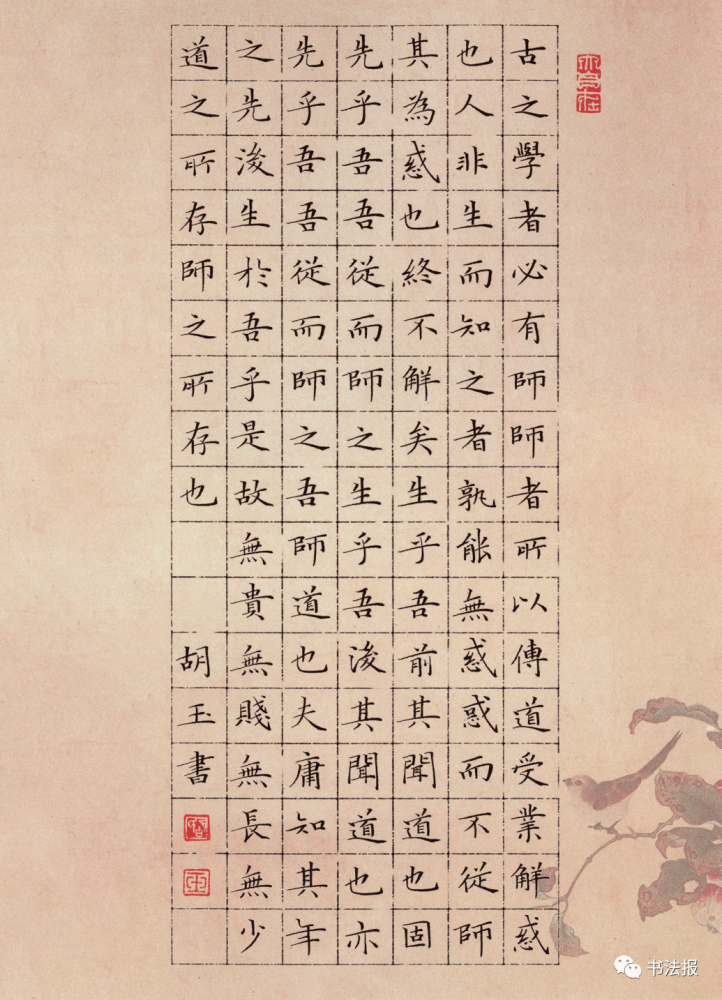 古之學者必有師師者所以傳道受業解惑
也人非生而知之者孰能無惑惑而不從師
其為惑也終不解矣生乎吾前其聞道也固
先乎吾吾從而師之生乎吾後其聞道也亦
先乎吾吾從而師之吾師道也夫庸知其年
之先後生於吾乎是故無貴無賤無長無少
道之所存師之所存也 胡玉書
书法报